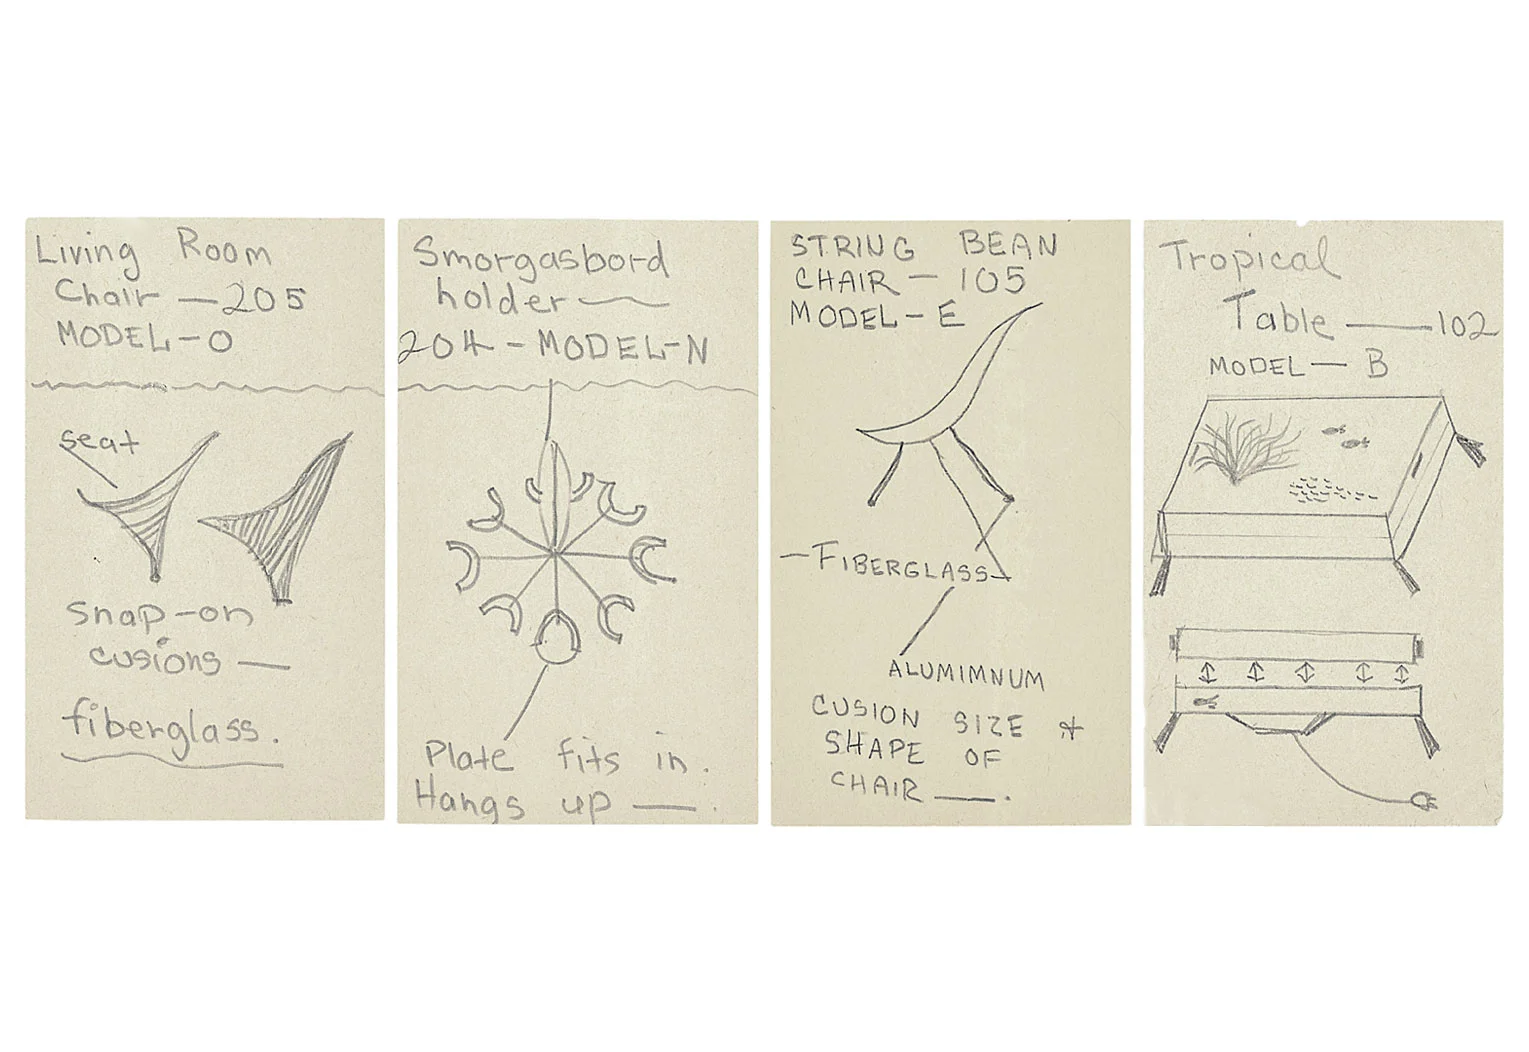 Living Room
Chair — 205
MODEL – O
seat
snap-on
cusions —
fiberglass.
Smorgasbord
holder
204 – MODEL-N
Plate fits in.
Hangs up —.
STRING BEAN
CHAIR — 105
MODEL – E
– FIBERGLASS –
ALUMIMNUM
CUSION SIZE +
SHAPE OF
CHAIR —.
Tropical
Table — 102
MODEL — B